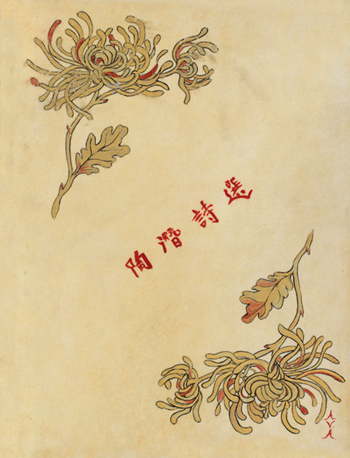 陶潛詩選
AVA